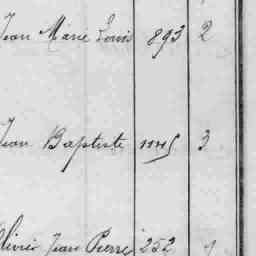 Jean Marie Louis 893 2
Jean Baptiste 3
Olivier Jean Pierre 252